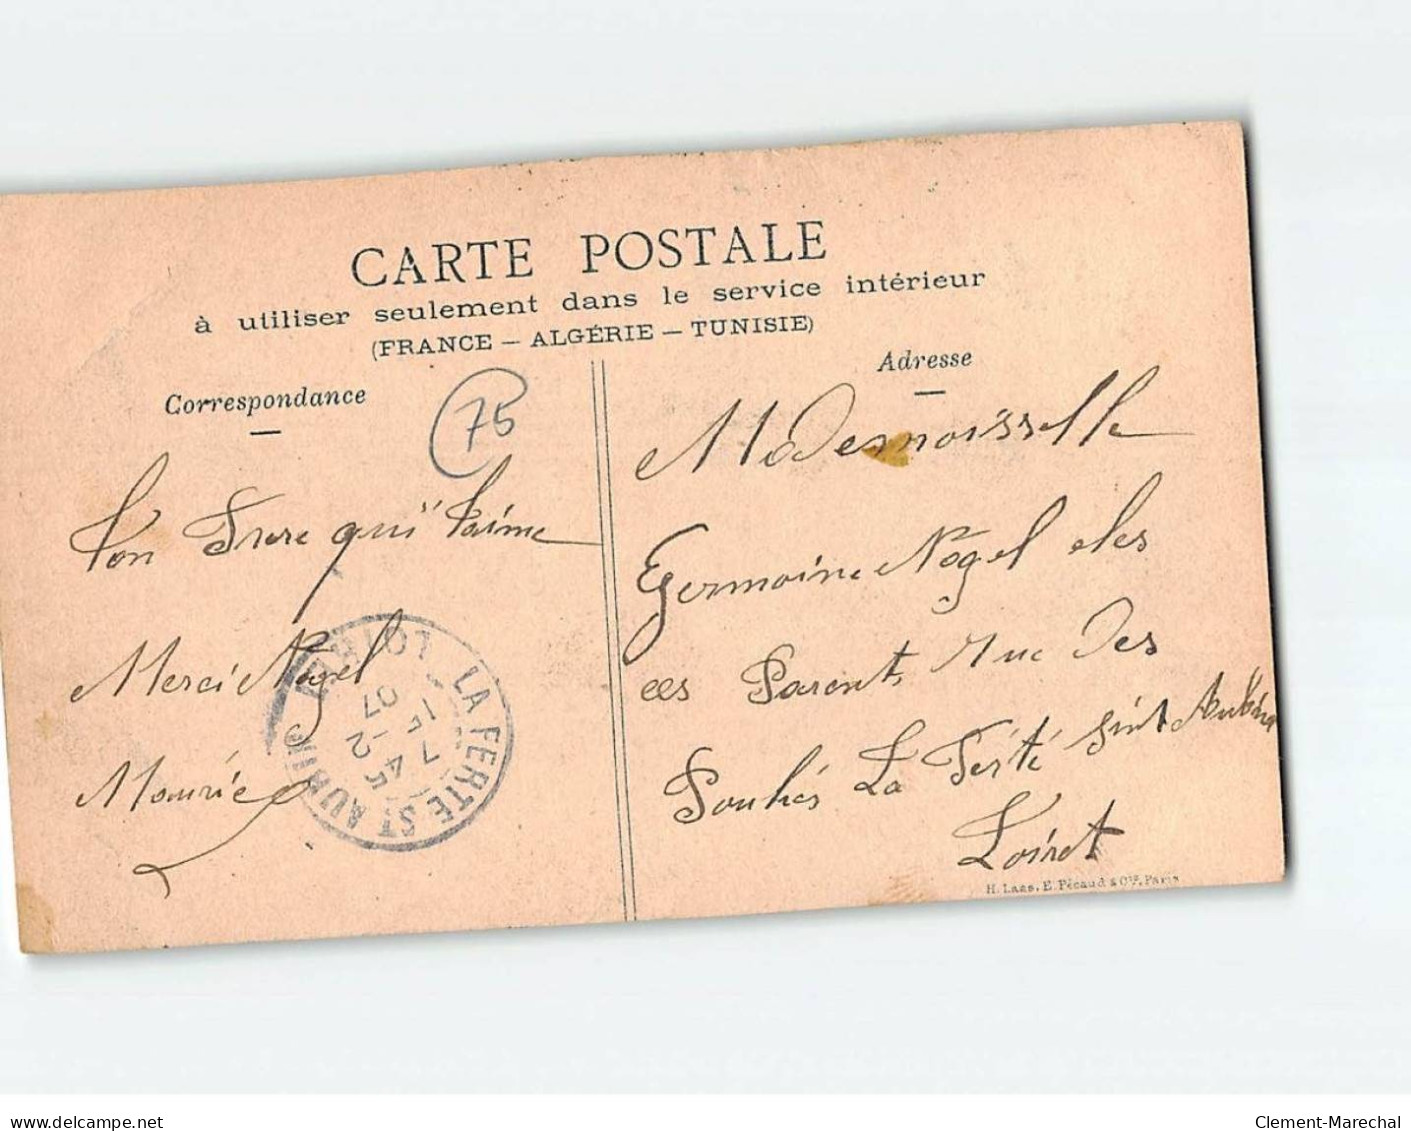 CARTE POSTALE
à utiliser seulement dans le service intérieur
(FRANCE — ALGÉRIE — TUNISIE)
Correspondance
75
Ton Frere qui t'aime
Merci Nagel
Maurice
LA FERTE ST AUBIN
LOIRET
7 45
15 -2
07
Adresse
Mademoisselle
Germaine Nogel ches
ces Parents rue Des
Poulies La Ferté Sint Aubin
Loiret
H. Laas, E. Pécaud & Cie, Paris
delcampe.net
Clement-Marechal